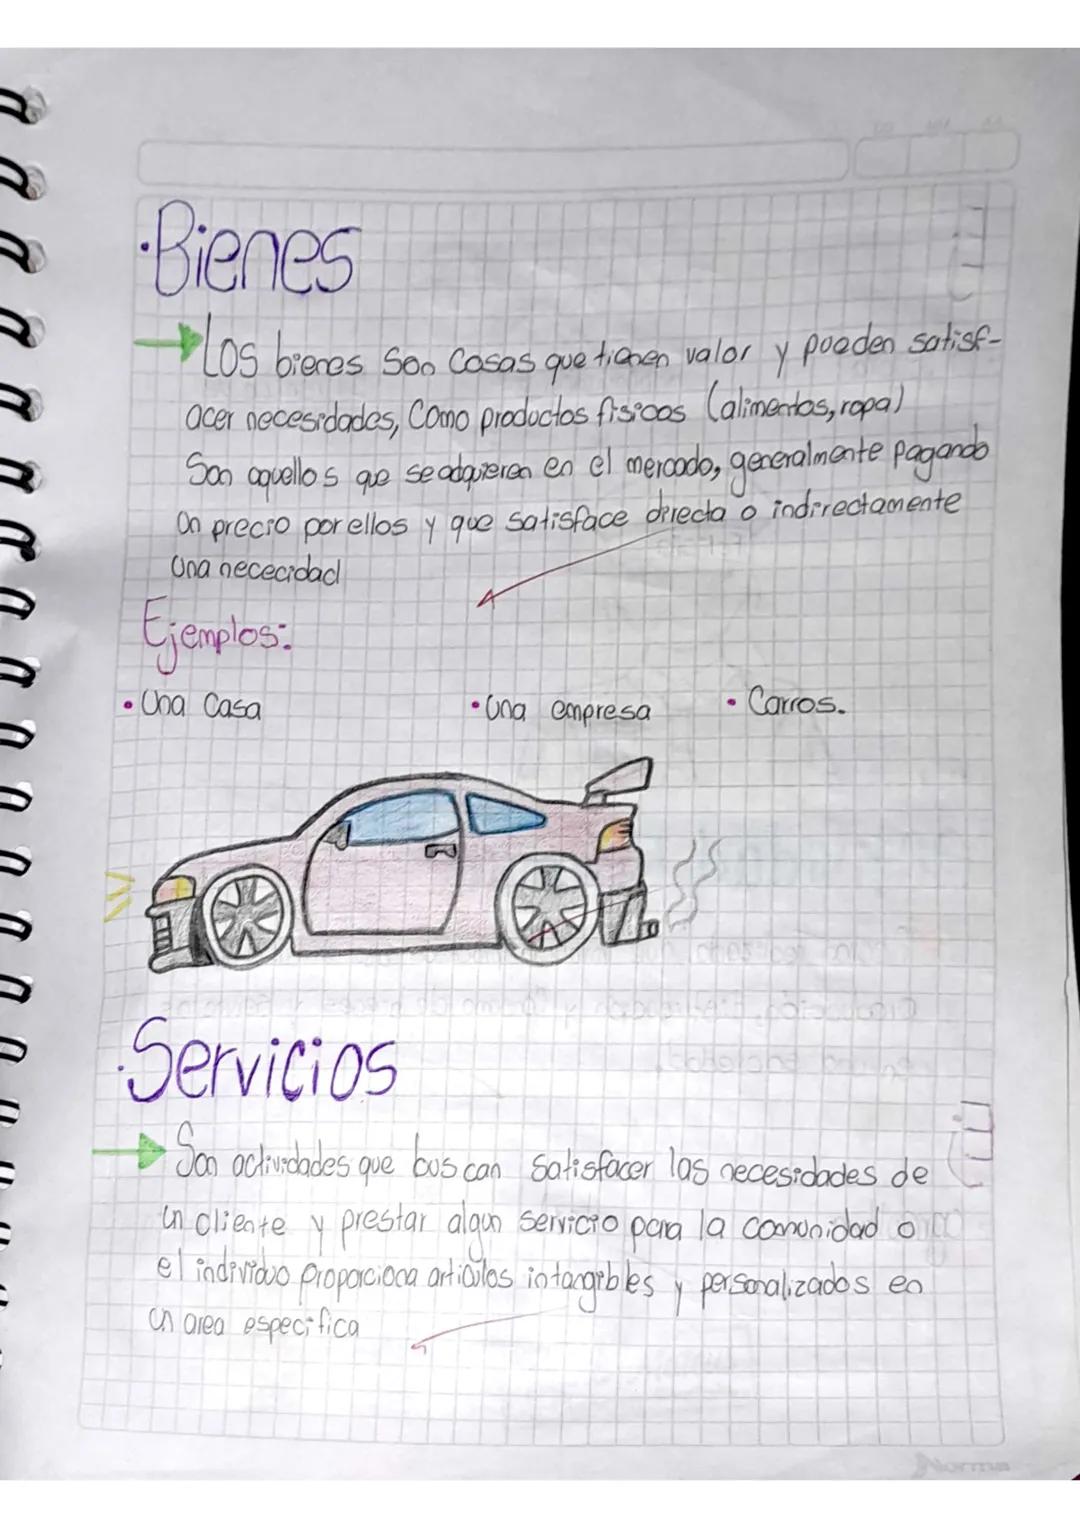 ·Bienes
Los bienes Son Cosas que tienen valor y pueden satisf-
acer necesidades, Como productos fisicos (alimentos, ropa)
Son aquellos que se adquieren en el mercado, generalmente pagando
Un precio por ellos y que satisface directa o indirectamente
Una nececidad
Ejemplos:
• Una Casa • Una empresa • Carros.
·Servicios
Son actividades que buscan satisfacer las necesidades de
un cliente y prestar algun servicio para la comunidad o
el individuo proporciona articulos intangibles y personalizados en
un area especifica
Norma